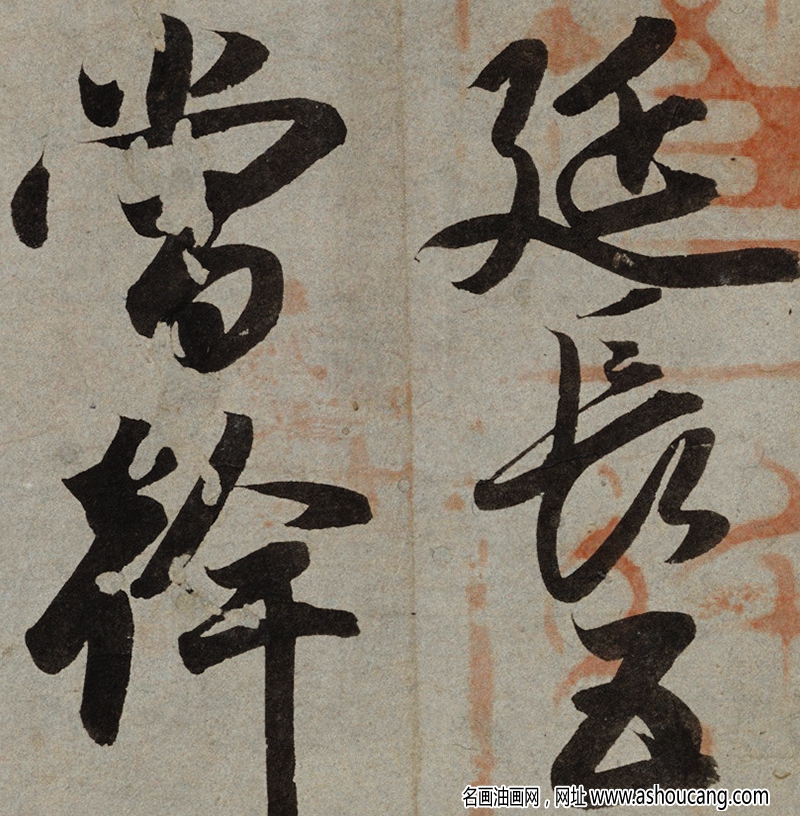 延長五
當幹
名画油画网，网址 www.ashoucang.com